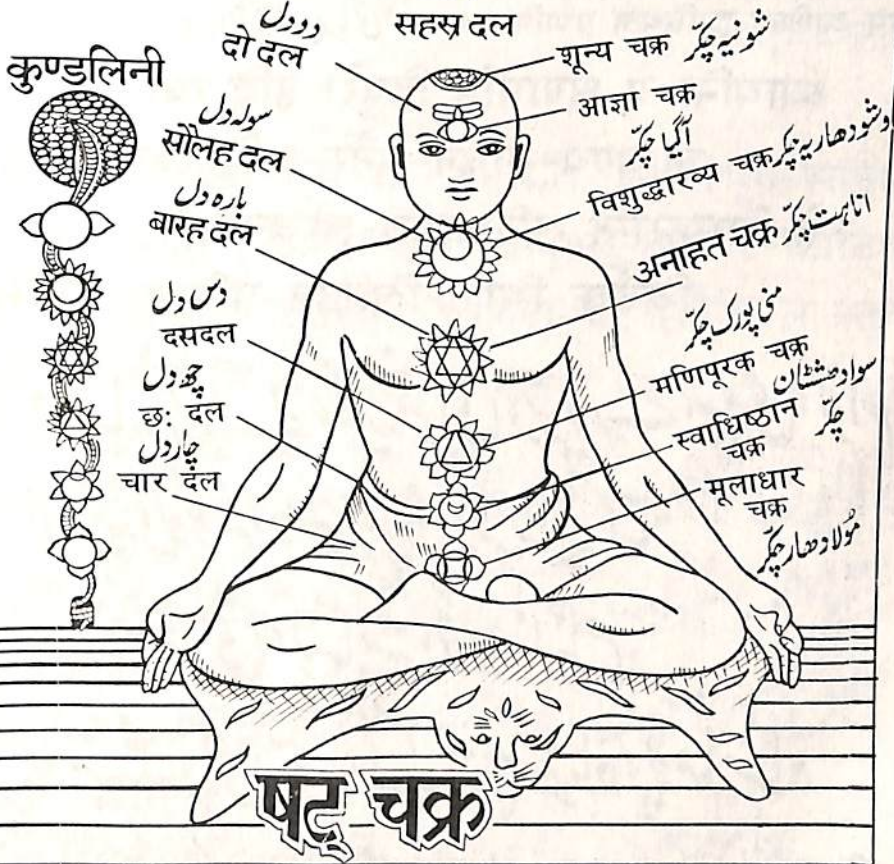 सहस्र दल
دو دل
दो दल
कुण्डलिनी
سولہ دل
सौलह दल
بارہ دل
बारह दल
دس دل
दसदल
چھ دل
छः दल
چار دل
चार दल
شونیہ چکر
शून्य चक्र
आज्ञा चक्र
آگیا چکر
وشودھاریہ چکر
विशुद्धारव्य चक्र
اناہت چکر
अनाहत चक्र
منی پورک چکر
मणिपूरक चक्र
سوادھشٹان
چکر
स्वाधिष्ठान
चक्र
मूलाधार
चक्र
مُولادھار چکر
षट् चक्र